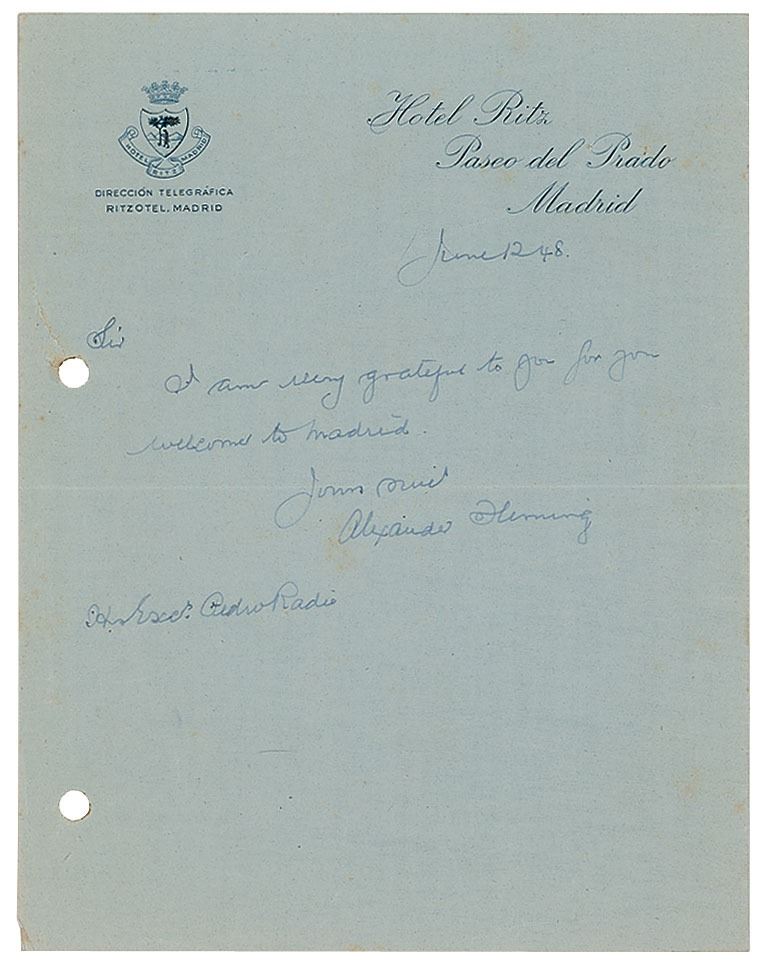 HOTEL RITZ MADRID
DIRECCIÓN TELEGRÁFICA
RITZOTEL. MADRID
Hotel Ritz
Paseo del Prado
Madrid
June 12 48.
Sir
I am very grateful to you for you
welcome to Madrid.
Yours
Alexander Fleming
Pedro Radio